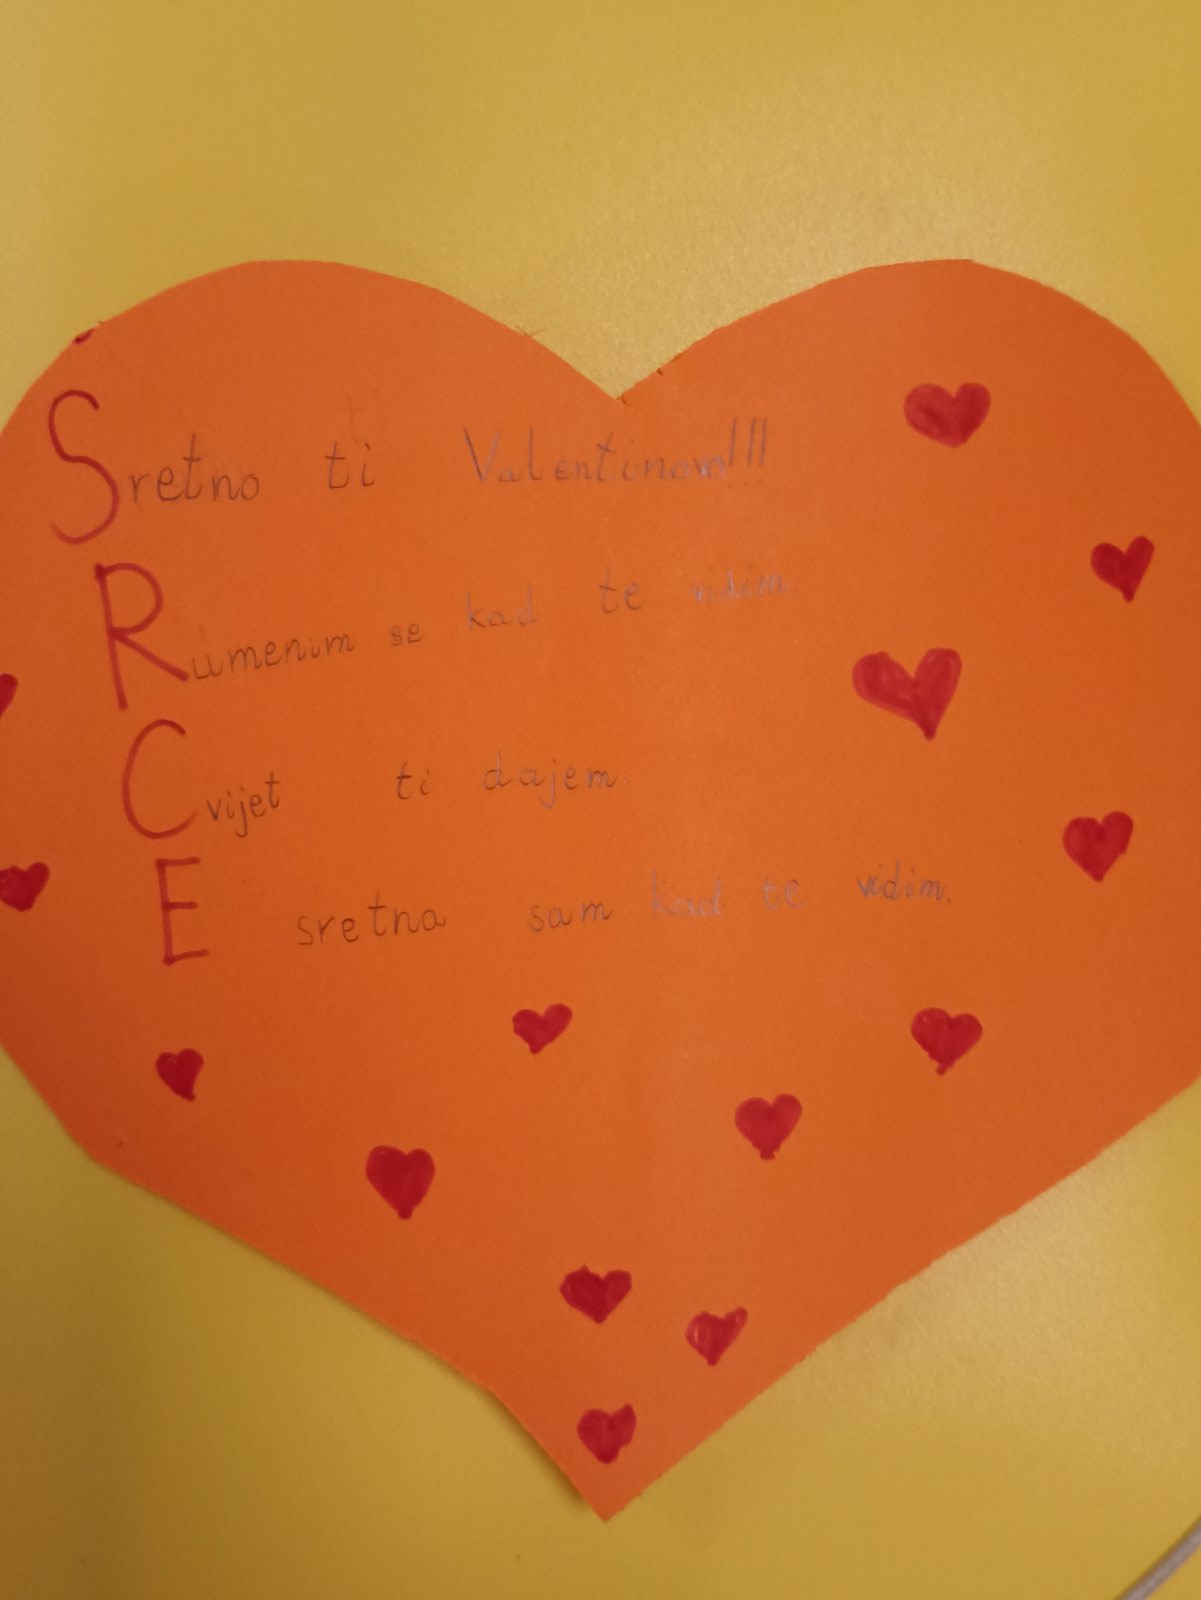 Sretno ti Valentinovo!!!
Rumenim se kad te vidim
Cvijet ti dajem.
E sretna sam kad te vidim.